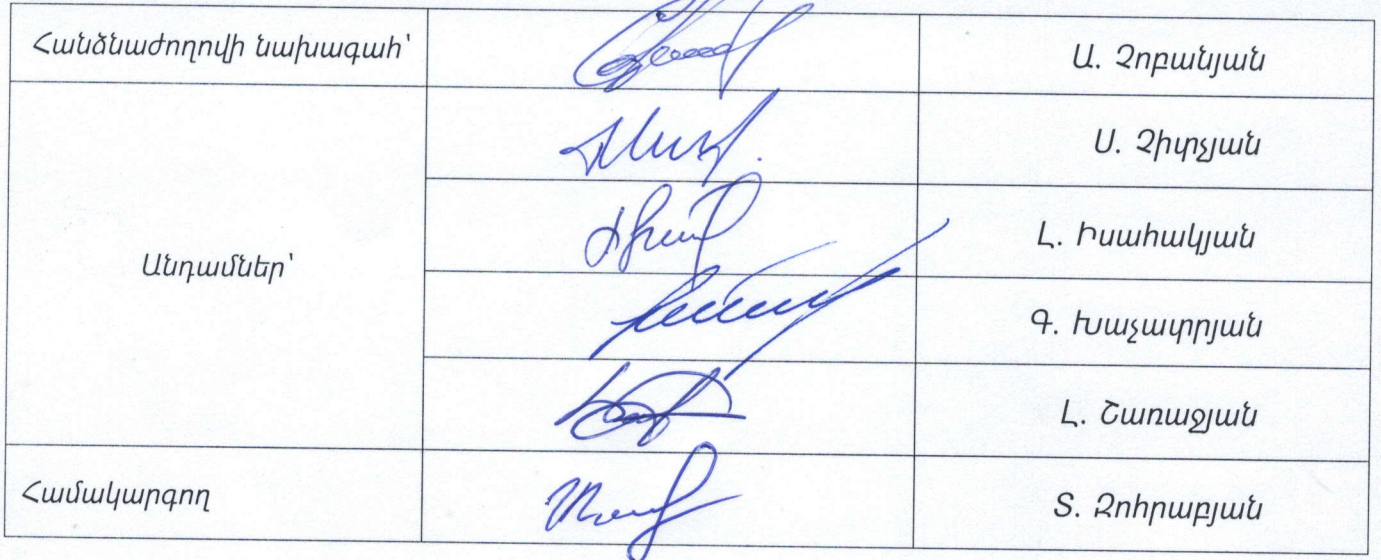 Հանձնաժողովի նախագահ՝
Ա. Չոբանյան
Ս. Չիտչյան
Լ. Իսահակյան
Անդամներ՝
Գ. Խաչատրյան
Լ. Շառաջյան
Համակարգող
Տ. Զոհրաբյան